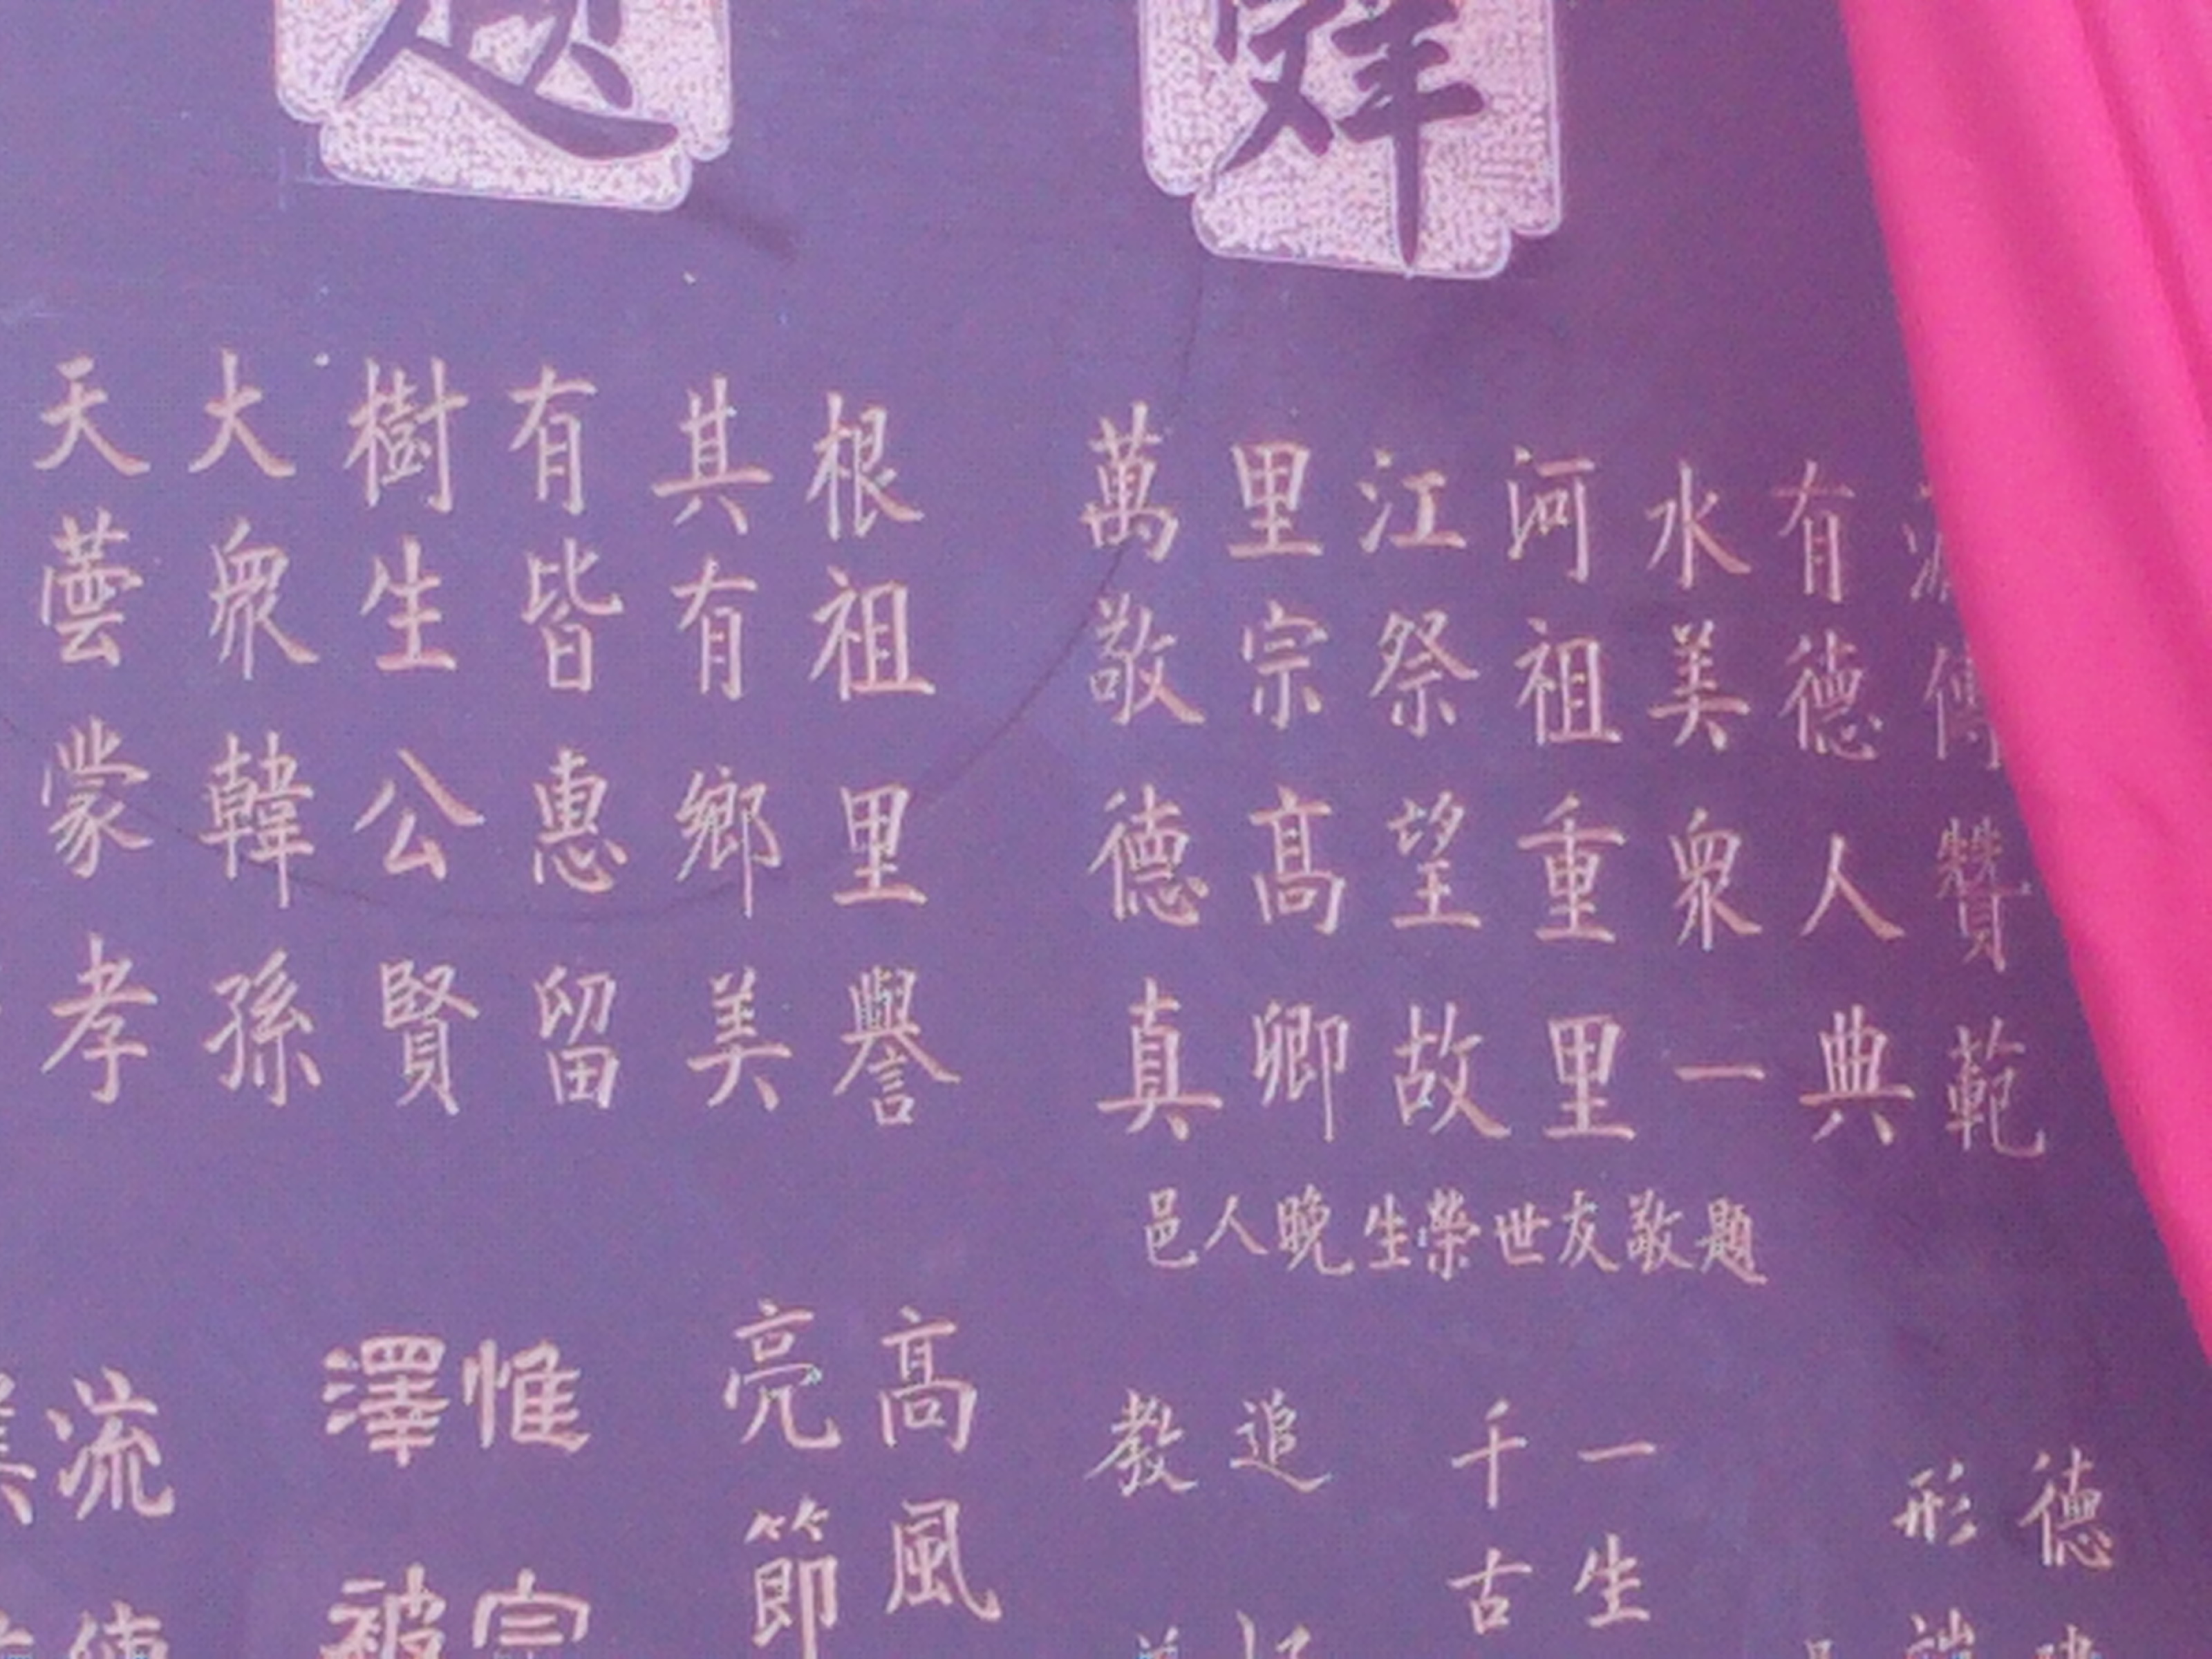 天大樹有其根
蕓眾生皆有祖
蒙韓公惠鄉里
孝孫賢留美譽
萬里江河水有
敬宗祭祖美德傳
德高望重眾人贊
真卿故里一典範
邑人晚生榮世友敬題
德
形
一生
千古
追
教
高風
亮節
惟
澤被
流